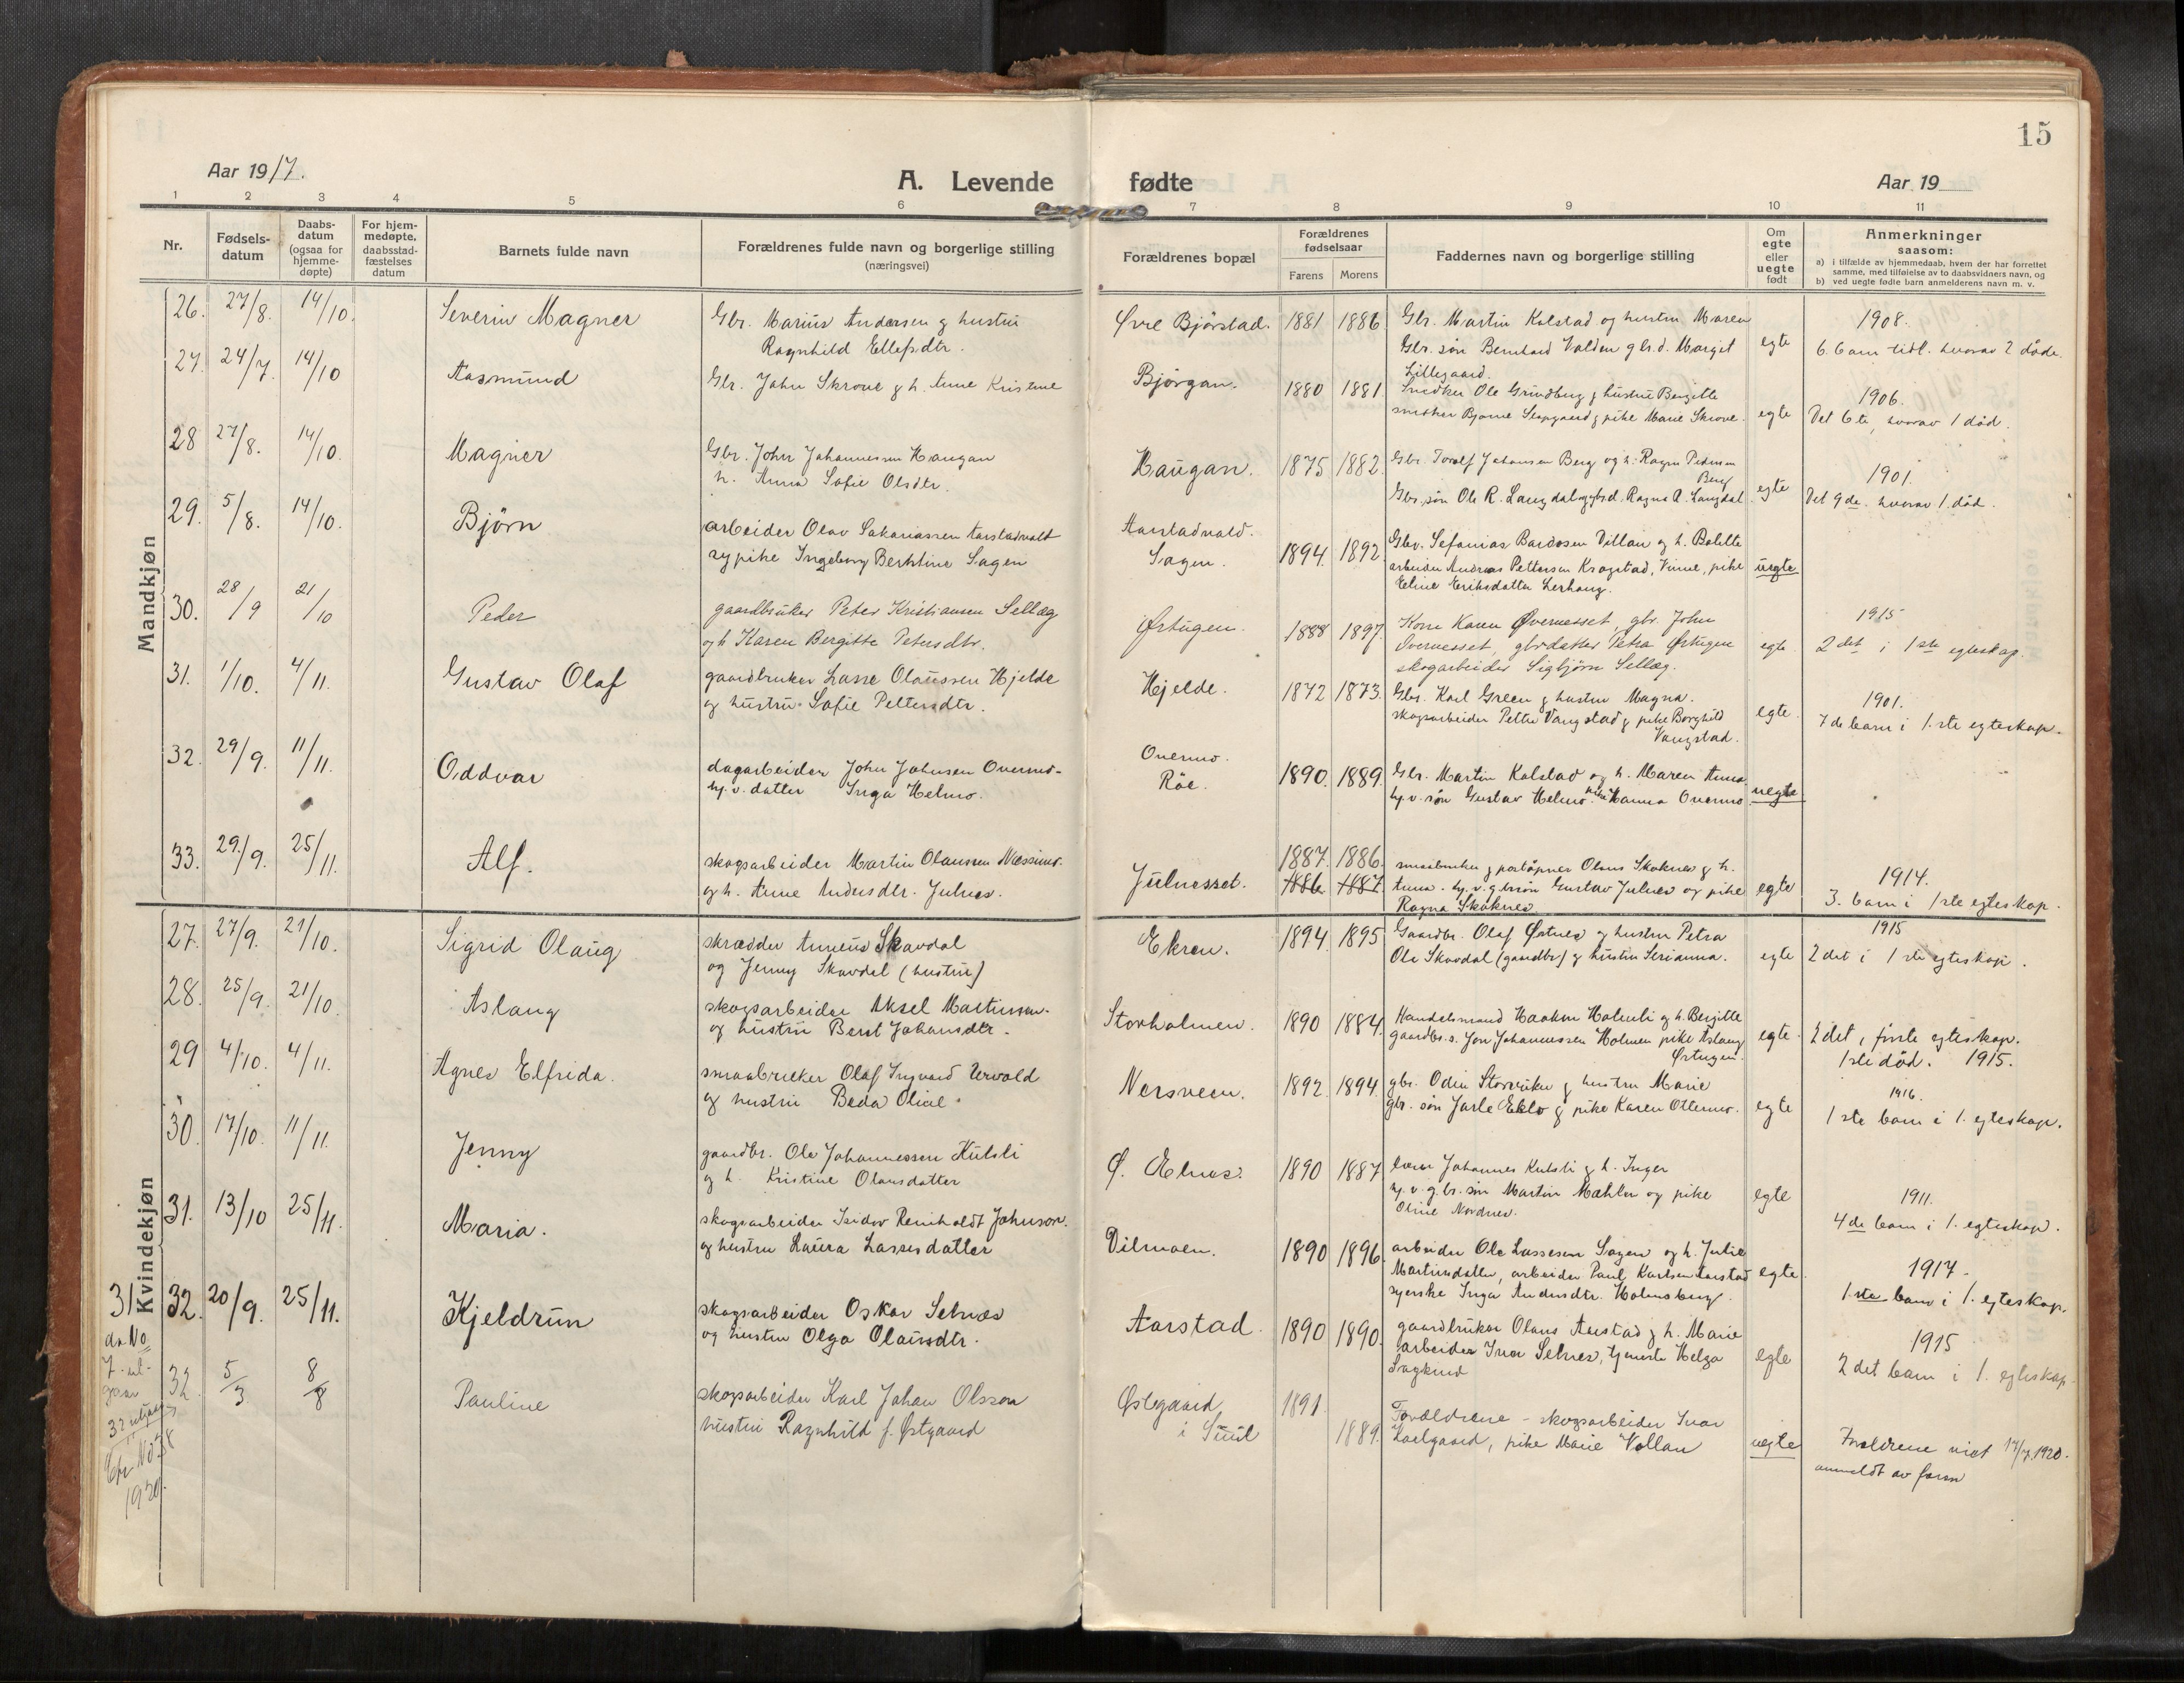 15
Aar 1917.
A. Levende fødte
Aar 19
1 2 3 4 5 6 7 8 9 10 11
Nr.
Fødsels-
datum
Daabs-
datum
(ogsaa for
hjemme-
døpte)
For hjem-
medøpte,
daabsstad-
fæstelses
datum
Barnets fulde navn
Forældrenes fulde navn og borgerlige stilling
(næringsvei)
Forældrenes bopæl
Forældrenes
fødselsaar
Farens Morens
Faddernes navn og borgerlige stilling
Om
egte
eller
uegte
født
Anmerkninger
saasom:
a) i tilfælde av hjemmedaab, hvem der har forrettet
samme, med tilføielse av to daabsvidners navn, og
b) ved uegte fødte barn anmelderens navn m. v.
Mandkjøn
26. 27/8. 14/10. Severin Magner
Gbr. Marius Andersen g hustru
Ragnhild Ellefsdtr.
Øvre Bjørstad. 1881 1886.
Gbr. Martin Kolstad og hustru Maren
Gbr. søn Bernhard Valden gbr.d. Marget
Lillegaard.
egte
1908.
6. barn tidl. hvorav 2 døde.
27. 24/7. 14/10 Aasmund
Gbr. John Skrove g h. Anne Kristine
Bjørgan. 1880 1881.
Snedker Ole Grundberg g hustru Bergitte
snedker Bjarne g pike Marie Skrove.
egte
1906.
Det 6te, hvorav 1 død.
28 27/8. 14/10. Magner
Gbr. John Johannessen Haugan
h. Anna Sofie Olsdtr.
Haugan. 1875 1882.
Gbr. Torolf Johansen Berg og h. Ragna Pedersen
Berg
Gbr. søn Ole R. Langdal og gbrd. Ragna A. Langdal
egte
1901.
Det 9de. hvorav 1 død.
29. 5/8. 14/10. Bjørn
arbeider Olav Sakariassen Aarstadvald
sypike Ingeborg Berntine Sagen
Aarstadvald.
Sagen. 1894. 1892.
Gbr. Sefanias Bardosen Villan og h. Bolette
arbeider Andreas Pettersen Kragstad, Vinne, pike
Eline Eriksdatter Lerhaug.
uegte
30. 28/9 21/10 Peder
gaardbruker Peter Kristiansen Sellæg
og h Karen Bergitte Petersdtr.
Østugen. 1888 1897.
Kone Karen Øvernesset, gbr. John
Øvernesset, gbrdatter Petra Østugen
skogarbeider Sigbjørn Sellæg.
egte
1915
2 det i 1ste egteskap.
31. 1/10. 4/11. Gustav Olaf
gaardbruker Lasse Olaussen Hjelde
og hustru Sofie Pettersdtr.
Hjelde. 1872 1873.
Gbr. Karl Green g hustru Magna.
skogsarbeider Petter Vangstad g pike Borghild
Vangstad.
egte.
1901.
7de barn i 1.ste egteskap.
32. 29/9. 11/11. Oddvar
dagarbeider John Johnsen Overmo-
hj. v. datter Inga Helmo.
Overmo.
Röe. 1890. 1889.
Gbr. Martin Kolstad og h. Maren Anna
hj. v. søn Gustav Helmo. pike Hanna Overmo.
uegte
33. 29./9. 25/11. Alf.
skogsarbeider Martin Olaussen Næssmo.
og h. Anne Andersdtr. Julnes.
Julnesset.
1887. 1886.
1886. 1887.
smaabruker g postaapner Olaus Skaknes g h.
Anna. hj. v. gbrsøn Gustav Julnes og pike
Ragna Skaknes
egte
1914.
3. barn i 1ste egteskap.
Kvindekjøn
27. 27/9. 21/10. Sigrid Olaug
skrædder Anneus Skavdal
og Jenny Skavdal (hustru)
Ekren. 1894. 1895
Gaardbr. Olaf Østnes og hustru Petra
Ole Skavdal (gaardbr) g hustru Serianna.
egte
1915
2 det i 1ste egteskap.
28. 25/9. 21/10. Aslaug
skogsarbeider Aksel Martinsen.
og hustru Beret Johansdtr.
Storholmen. 1890 1884.
Handelsmand Haakon Holmli og h. Bergitte
gaardbr. s. Jon Johannessen Holmen pike Aslaug
Østugen.
egte.
2 det, første egteskap.
1ste død. 1915.
29 4/10. 4/11. Agnes Elfrida.
smaabruker Olaf Ingvard Urvold
og hustru Beda Oline.
Nersveen. 1892. 1894.
gbr. Odin Storviken g hustru Marie
gbr. søn Jarle Eklo g pike Karen Ottermo.
egte
1916.
1ste barn i 1. egteskap.
30. 17/10. 11/11. Jenny
gaardbr. Ole Johannessen Kulsli
og h. Kristine Olausdatter
Ø. Elnes. 1890 1887.
lærer Johannes Kulsli g h. Inger
hj. v. g.br. søn Martin Mæhler og pike
Oline Nordnes.
egte
1911.
4de barn i 1. egteskap.
31. 13/10 25/11. Maria.
skogsarbeider Isidor Reinholdt Johnson.
og hustru Laura Lassesdatter
Vilmoen. 1890 1896.
arbeider Ole Lassesen Sagen og h. Julie
Martinsdatter, arbeider Paul Karlsen Aarstad
syerske Inga Andersdtr. Holmsberg.
egte.
1917.
1.ste barn i 1. egteskap.
31 32. 20/9. 25/11. Kjeldrun
skogsarbeider Oskar Selnæs
og hustru Olga Olausdtr.
Aarstad. 1890 1890.
gaardbruker Olaus Aarstad g h. Marie
arbeider Ivar Selnes, tjeneste Helga
egte
1915
2 det barn i 1. egteskap.
da No
7 ut-
gaar
32 utgaar
Cfr. No 38
1920.
32. 5/3 8/8 Pauline
skogsarbeider Karl Johan Olsson
hustru Ragnhild f. Østgaard
Østgaard
i Suul
1891.
1889.
Forældrene - skogsarbeider Ivar
pike Marie Vollan
uegte
Forældrene viet 17/7.1920.
anmeldt av faren